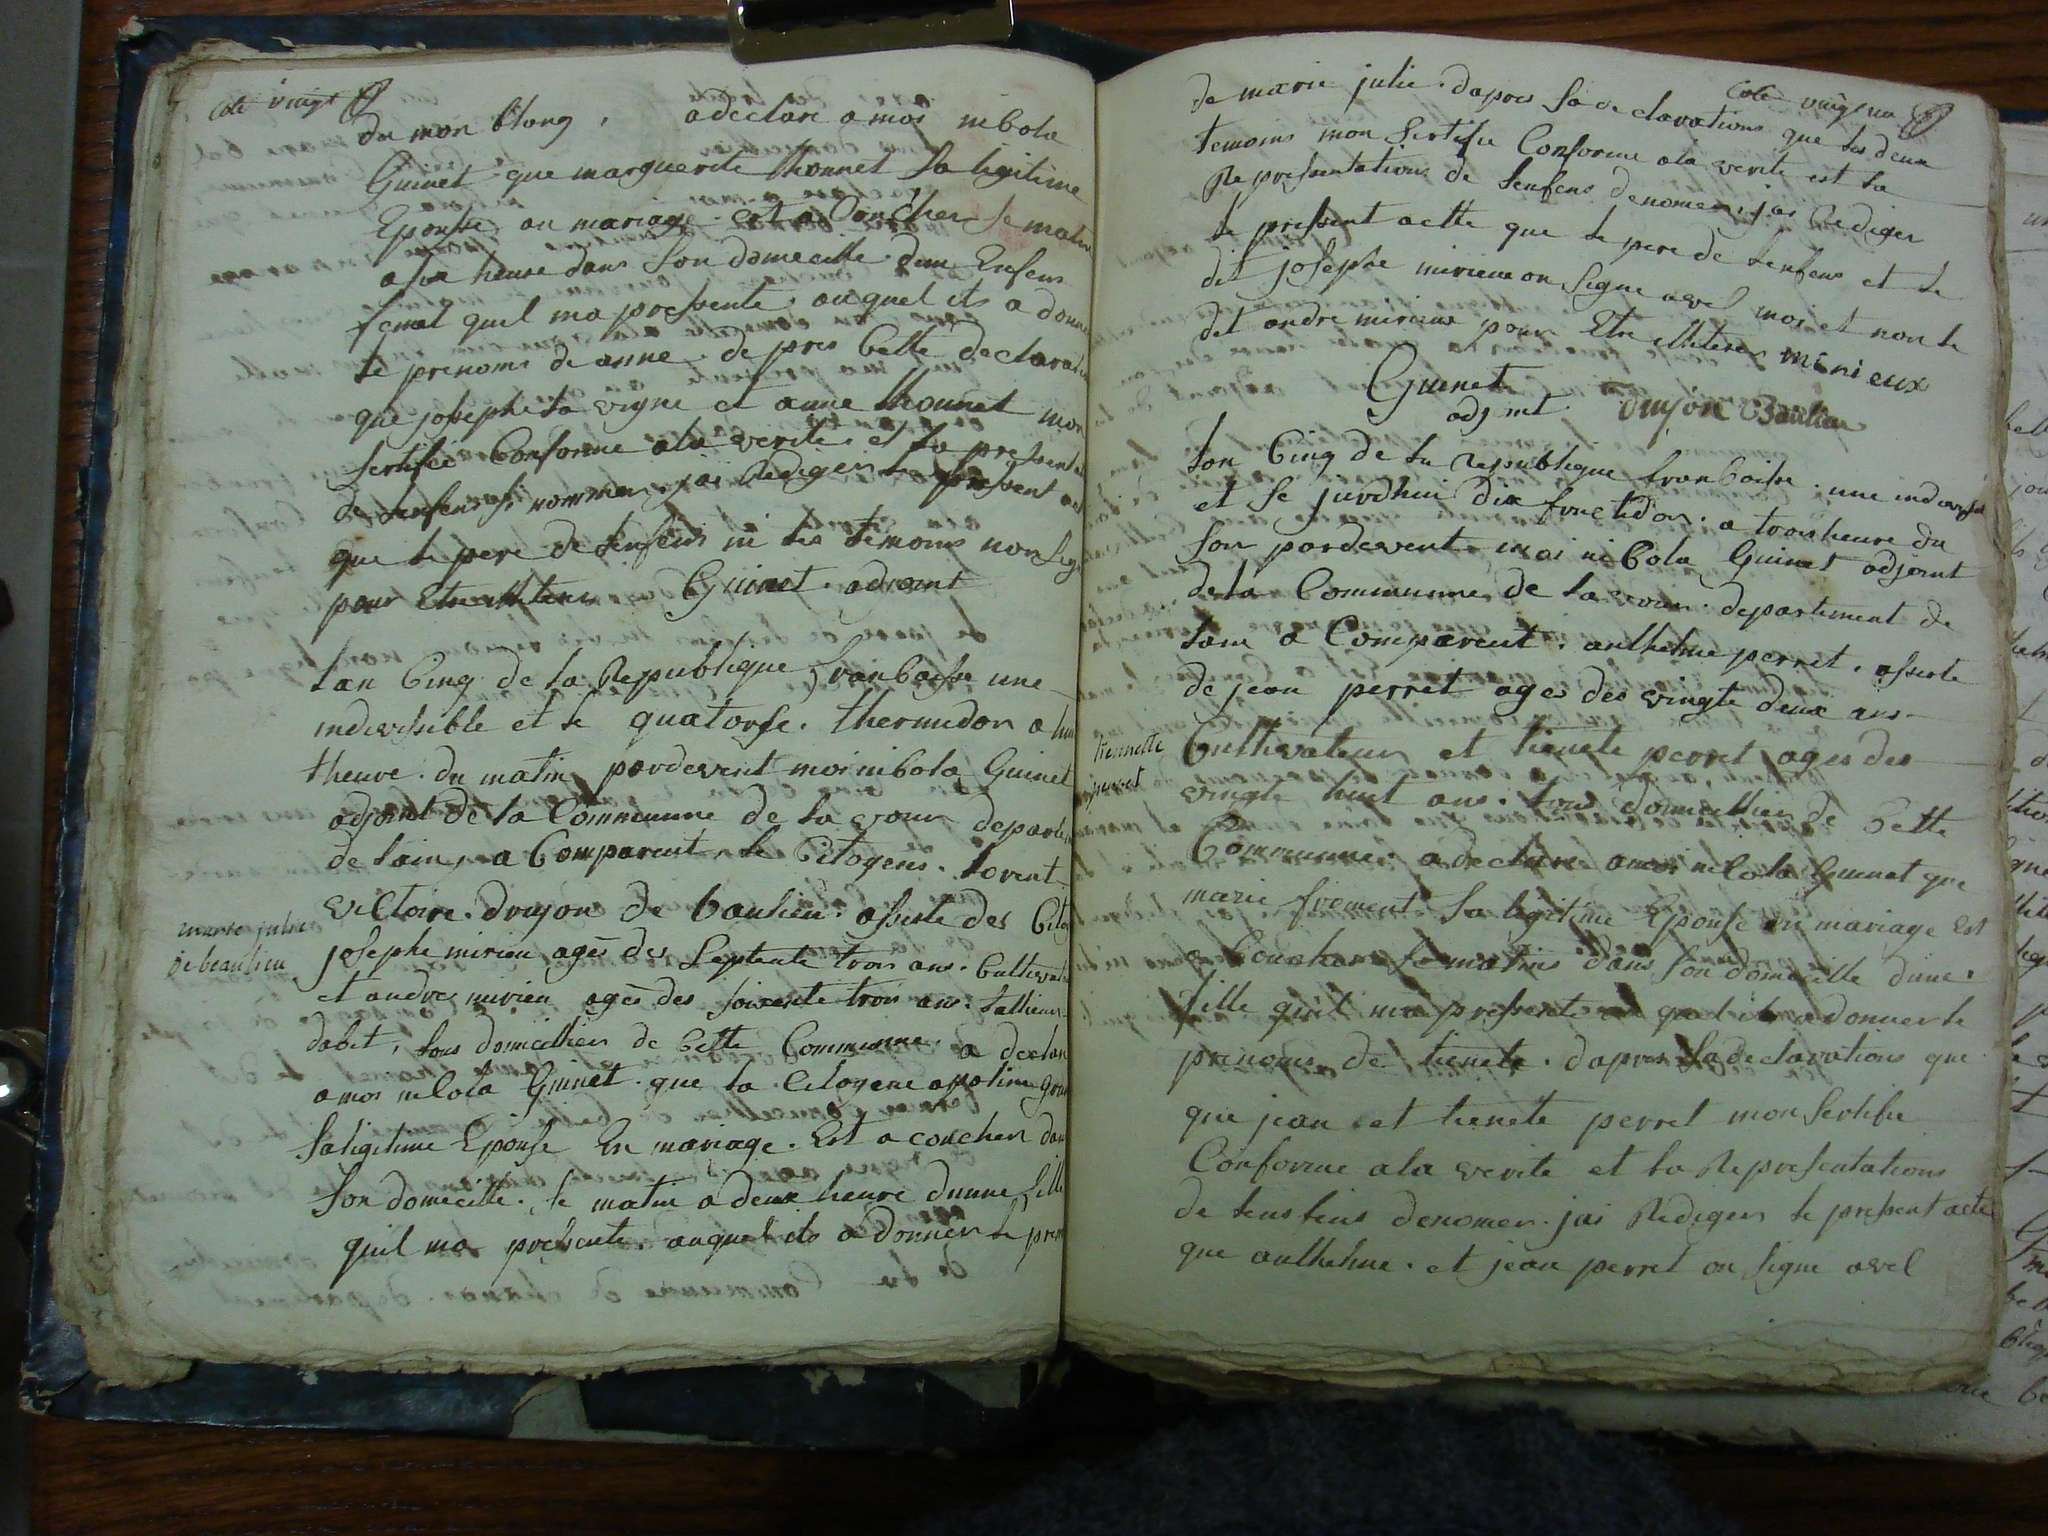 Coté vingt
du mon blong, a declare a moi nibola
Guinet que marguerite thonnet Sa legitime
Epouse an mariage est a Coucher Se matin
a Six heure dans Son domecille dun Enfens
femel quil ma pressente. auquel its a donne
le prenoms de anne. de pres Cette declaration
que josephe la vigne et anne thonnet mon
Sertifié Conforme ala verité. et la pressent
de Lenfens Si nommer. jai Rediger le pressent
que le pere de Lenfens ni les temoins non Sig
pour Etre illiterer Guinet adjoint
Lan Cinq de la Republique franboise une
indivisible et le quatorse. thermidor a huit
theure. du matin pardevent moi nibola Guinet
adjoint de la Commune de la cour departe
de Lain, a Comparent. le Citoyens. Lorent
marie julie
de beaulieu
victoire. drujon de baulieu. assisté des Cito
josephe mirieu agés des Septente trois ans. Cultivate
et andre mirieu agés des Soixente trois ans. tallieur
dabit, tous domecillier de Cette Commune. a declare
a moi nicola Guinet. que la Citoyene apoline
Saligitime Epouse En mariage. Est a coucher dans
Son domecille. Se matin a deux heure dunne fille
quil ma présente. auquel its a donner le pren
Coté vingt un
de marie julie. dapres Sa declarations que les deux
temoins mon Sertifié Conforme ala verité est la
Representations de Lenfens denomer, jai Rediger
le pressent actte que le pere de Lenfens et le
dit josephe mirieux on Signe avel moi et non le
dit andre mirieux pour Etre illiterer mirieux
Guinet
adj.int. Drujon Baulieu
Lan Cinq de la Republique franboise. une indivisible
et Se jurdhui dix fructidor. a trois heure du
Soir pardevent moi nibola Guinet adjoint
dela Commune de la cour. departement de
Lain a Comparent. anthelme perret. assisté
de jean perret agés des vingte deux ans
tiennette
perret
Cultivateur et tienete perret agés des
vingte huit ans. tous domecillier de Cette
Commune. a declare a moi nicola Guinet que
marie froment Sa legitime Epouse en mariage Est
a Coucher Se matins dans Son domecille dune
fille quil ma pressente au quel its a donner le
prenoms de tienete. dapres Sa declarations que
que jean et tienete perret mon Sertifié
Conforme ala verité et la Representations
de Lensfens denomer. jai Rediger le pressent acte
que anthelme. et jean perret on Signe avel